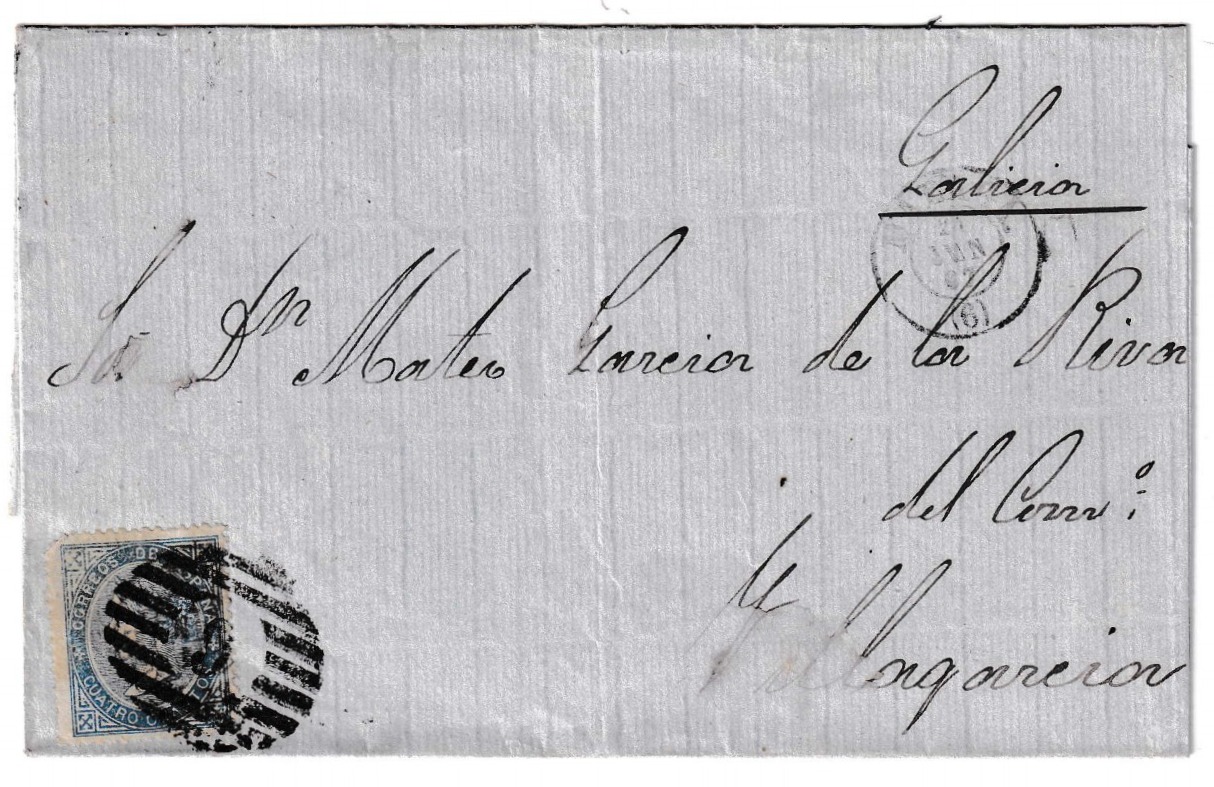 Galicia
JUN
67
(6)
Sor Dn Mateo Garcia de la Riva
del Comº
Villagarcia
CORREOS DE ESPAÑA
CUATRO